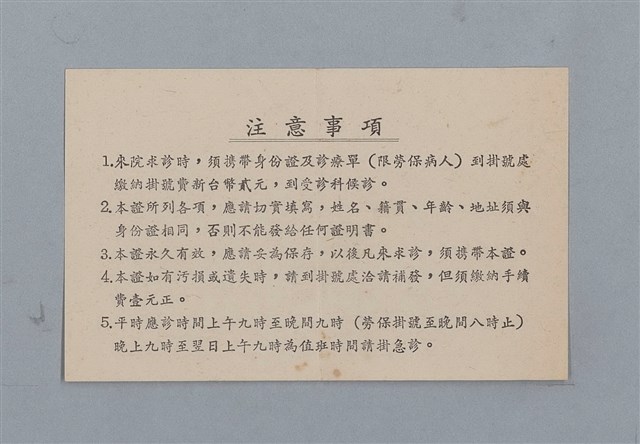 注意事項
1.來院求診時，須携帶身份證及診療單（限勞保病人）到掛號處
繳納掛號費新台幣貳元，到受診科候診。
2.本證所列各項，應請切實填寫，姓名、籍貫、年齡、地址須與
身份證相同，否則不能發給任何證明書。
3.本證永久有效，應請妥為保存，以後凡來求診，須携帶本證。
4.本證如有污損或遺失時，請到掛號處洽請補發，但須繳納手續
費壹元正。
5.平時應診時間上午九時至晚間九時（勞保掛號至晚間八時止）
晚上九時至翌日上午九時為值班時間請掛急診。